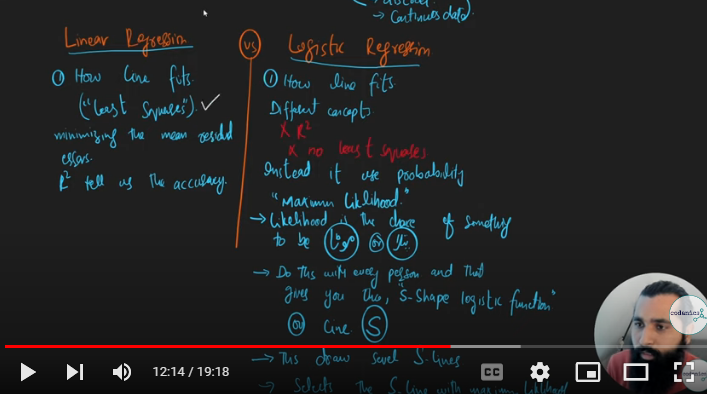 → Continues data)
Linear Regression
vs
Logistic Regression
① How line fits.
("Least Squares") ✓
minimizing the mean residual
errors.
R² tell us the accuracy.
① How line fits
Different concepts
X R²
X no least squares
Instead it use probability
"Maximum Liklihood."
→ Likelihood is the chance of something
to be موٹا or پتلا
→ Do this with every person and that
gives you this, "S-Shape logistic function"
or Line S
→ This draw sevel S-lines
→ Selects the S.line with maximum likelihood
codanics
12:14 / 19:18
CC